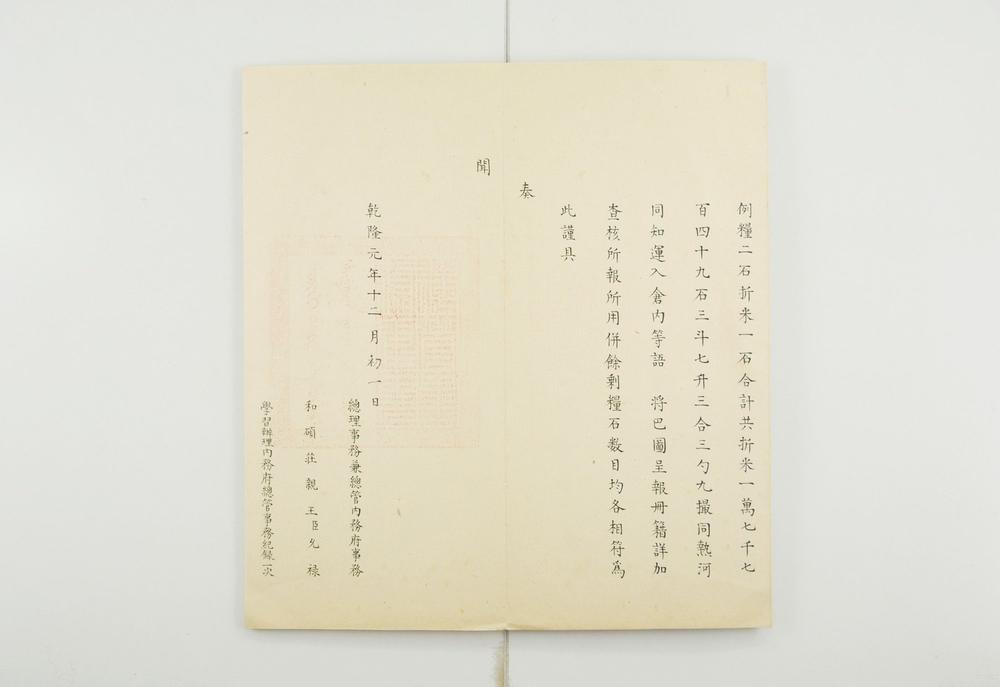 例糧二石折米一石合計共折米一萬七千七
百四十九石三斗七升三合三勺九撮同熱河
同知運入倉內等語　將巴圖呈報冊籍詳加
查核所報所用併餘剩糧石數目均各相符為
此謹具
奏
聞
乾隆元年十二月初一日
總理事務兼總管內務府事務
和碩莊親王臣允祿
學習辦理內務府總管事務紀錄一次